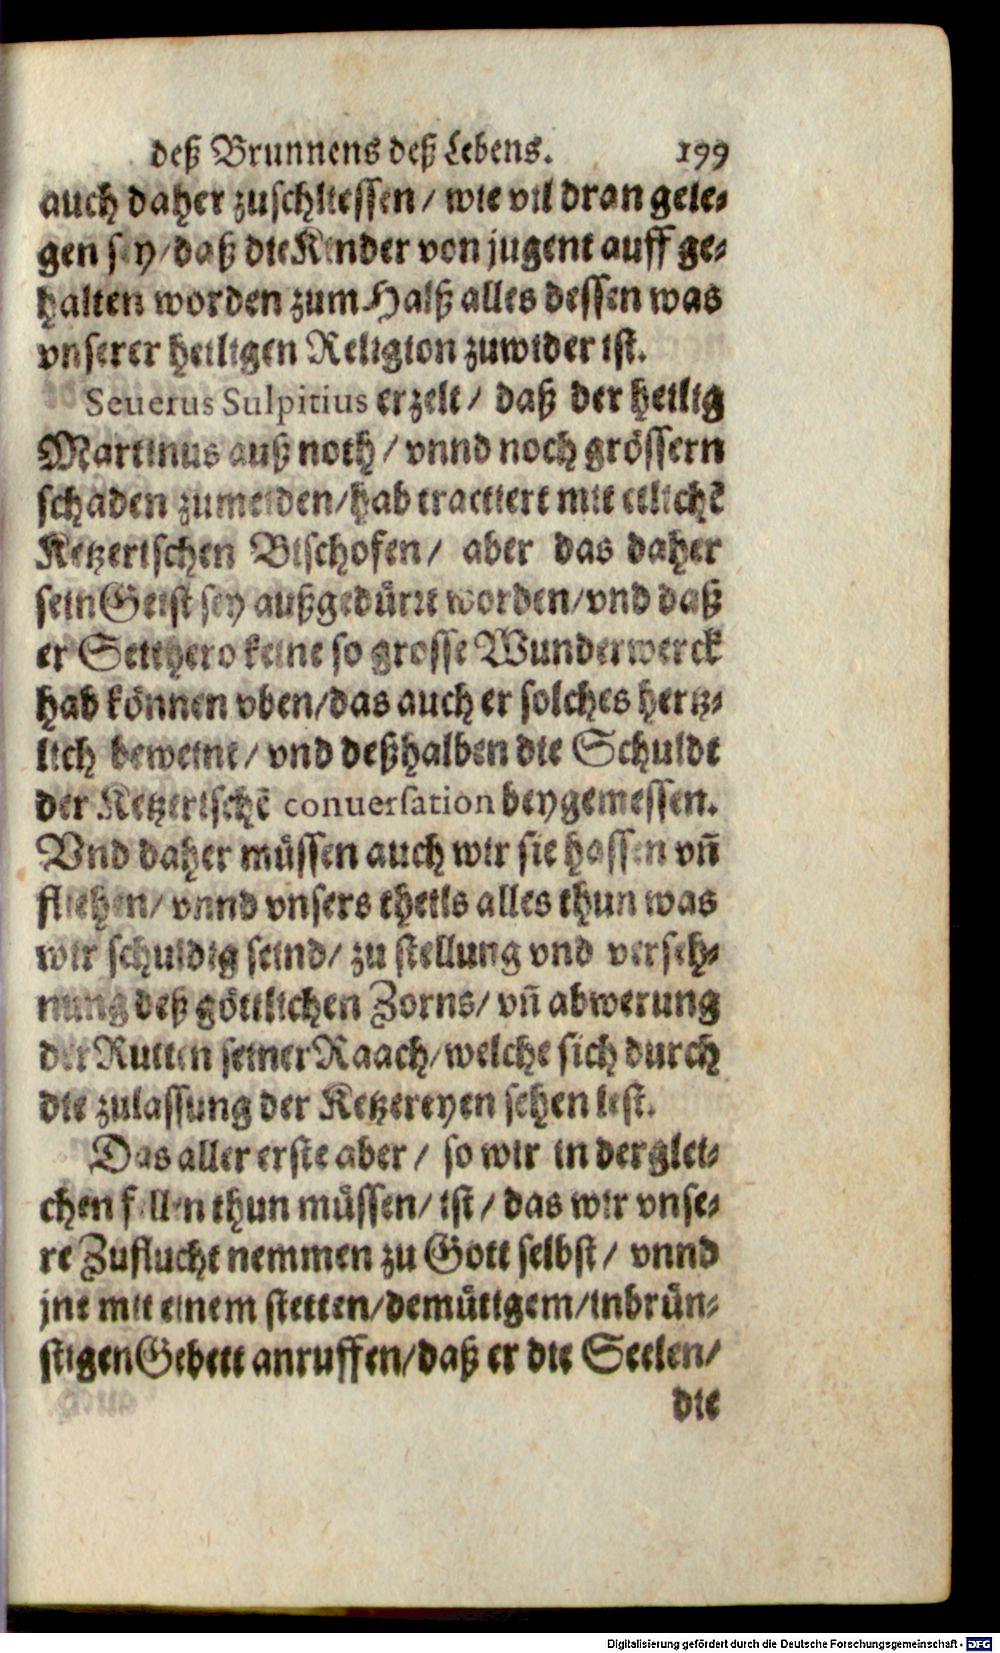 deß Brunnens deß Lebens. 199
auch daher zuschliessen / wie vil dran gele-
gen sey / daß die Kinder von jugent auff ge-
halten worden zum Halß alles dessen was
vnserer heiligen Religion zuwider ist.
Seuerus Sulpitius erzelt / daß der heilig
Martinus auß noth / vnnd noch grössern
schaden zumeiden / hab tractiert mit etlichẽ
Ketzerischen Bischofen / aber das daher
sein Geist sey außgedürrt worden / vnd daß
er Seithero keine so grosse Wunderwerck
hab können vben / das auch er solches hertz-
lich beweint / vnd deßhalben die Schuldt
der Ketzerischẽ conuersation beygemessen.
Vnd daher müssen auch wir sie hassen vñ
fliehen / vnnd vnsers theils alles thun was
wir schuldig seind / zu stellung vnd verseh-
nung deß göttlichen Zorns / vñ abwerung
der Rutten seiner Raach / welche sich durch
die zulassung der Ketzereyen sehen lest.
Das aller erste aber / so wir in derglei-
chen fellen thun müssen / ist / das wir vnse-
re Zuflucht nemmen zu Gott selbst / vnnd
jne mit einem stetten / demütigem / inbrün-
stigen Gebett anruffen / daß er die Seelen /
die
Digitalisierung gefördert durch die Deutsche Forschungsgemeinschaft - DFG